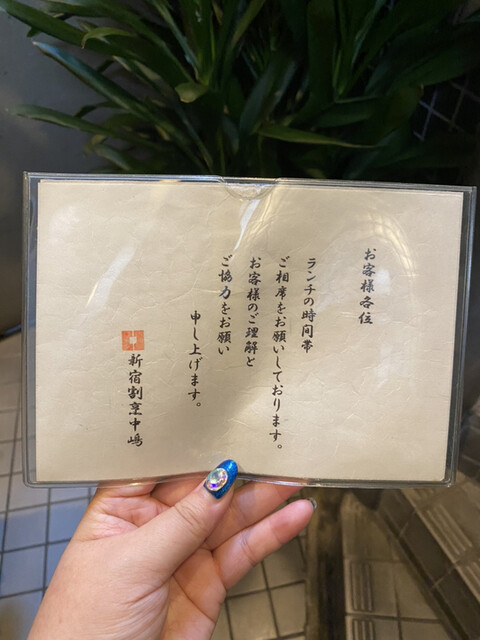 お客様各位
ランチの時間帯
ご相席をお願いしております。
お客様のご理解と
ご協力をお願い
申し上げます。
新宿割烹中嶋